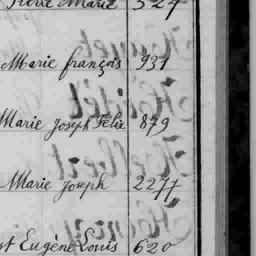 Pierre Marie 524
Marie françois 931
Marie Joseph Felix 879
Marie Joseph 2277
Eugène Louis 620